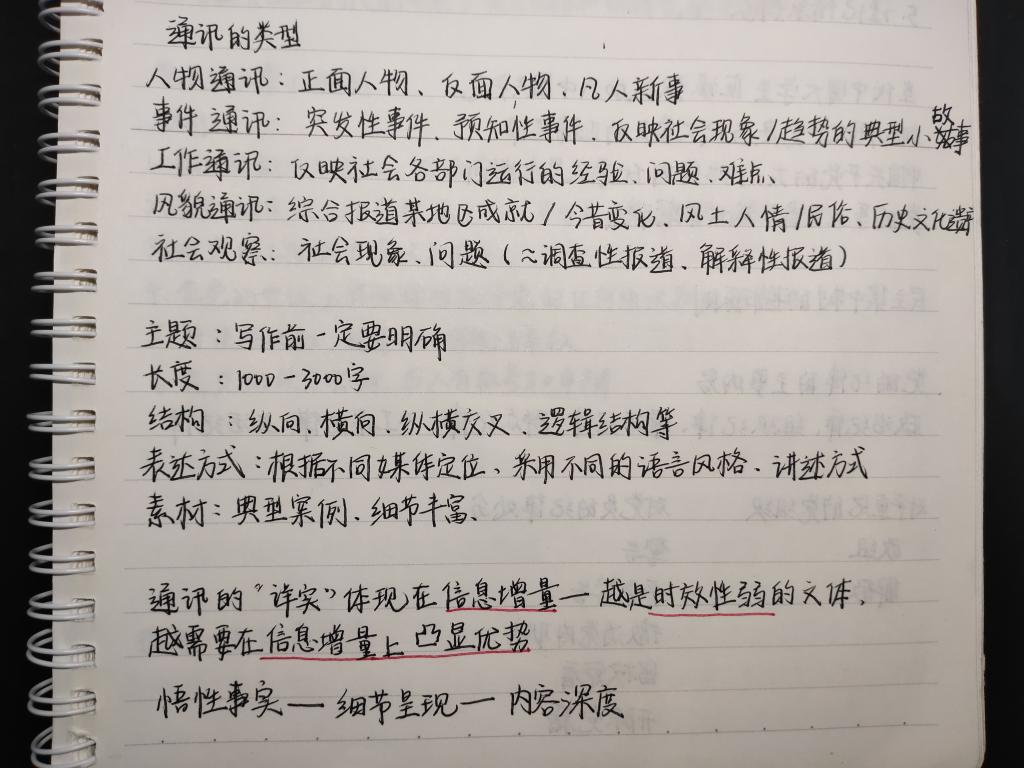 通讯的类型
人物通讯：正面人物、反面人物、凡人新事
事件通讯：突发性事件、预知性事件、反映社会现象/趋势的典型小故事
工作通讯：反映社会各部门运行的经验、问题、难点、
风貌通讯：综合报道某地区成就/今昔变化、风土人情/民俗、历史文化遗产
社会观察：社会现象、问题（≈调查性报道、解释性报道）
主题：写作前一定要明确
长度：1000-3000字
结构：纵向、横向、纵横交叉、逻辑结构等
表达方式：根据不同媒体定位、采用不同的语言风格、讲述方式
素材：典型案例、细节丰富、
通讯的“详实”体现在信息增量—越是时效性弱的文体，
越需要在信息增量上凸显优势
悟性事实—细节呈现—内容深度